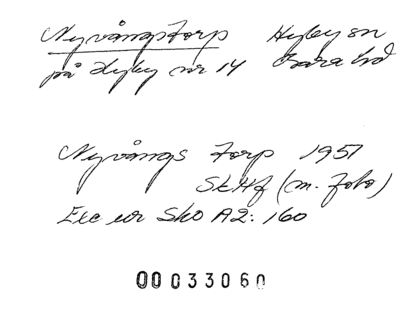 Nyvångstorp Hyby sn
på Hyby nr 14 Bara hd
Nyvångs Torp 1951
SkHf (m. foto)
Exc ur SkO A2: 160
00033060